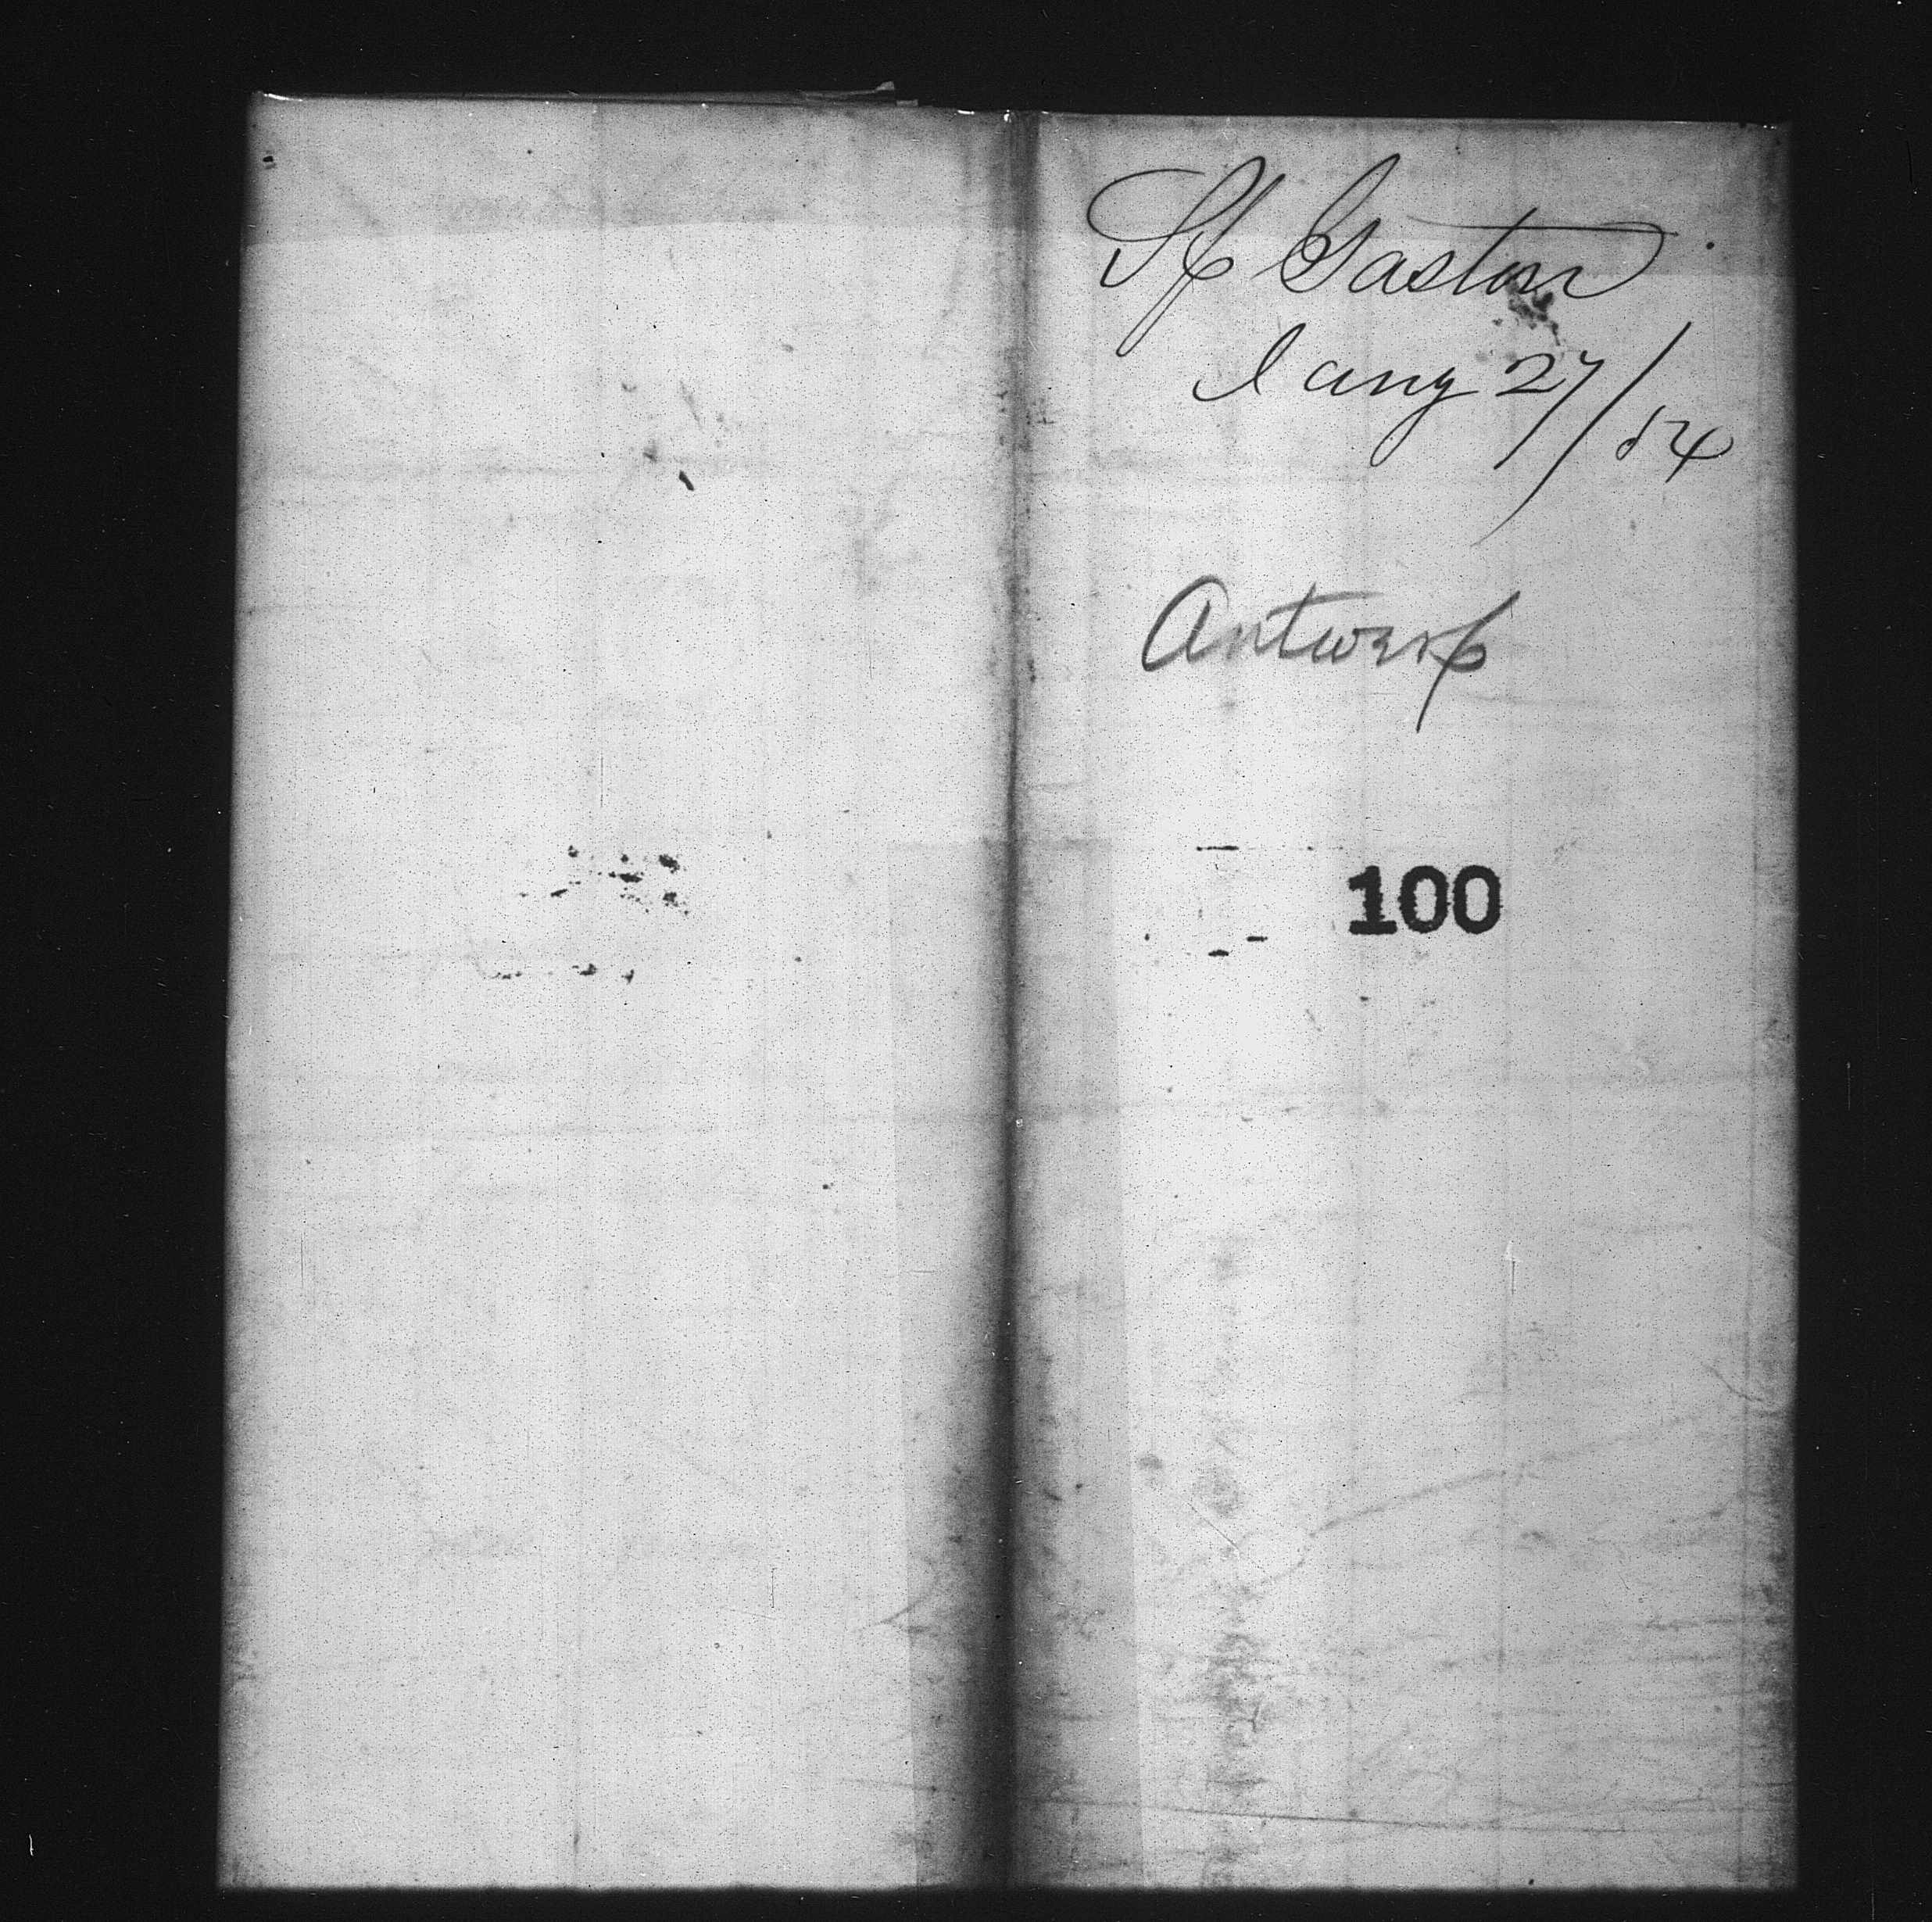 Sp Gaston
Jany 27/54
Antwerp
100